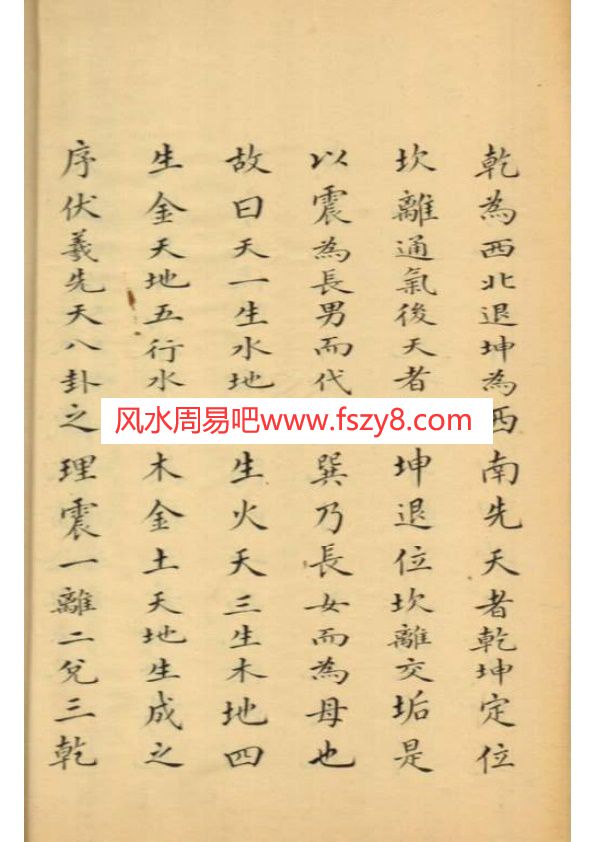 乾為西北退坤為西南先天者乾坤定位
坎離通氣後天者坤退位坎離交垢是
以震為長男而代巽乃長女而為母也
故曰天一生水地生火天三生木地四
生金天地五行水木金土天地生成之
序伏羲先天八卦之理震一離二兌三乾
风水周易吧www.fszy8.com